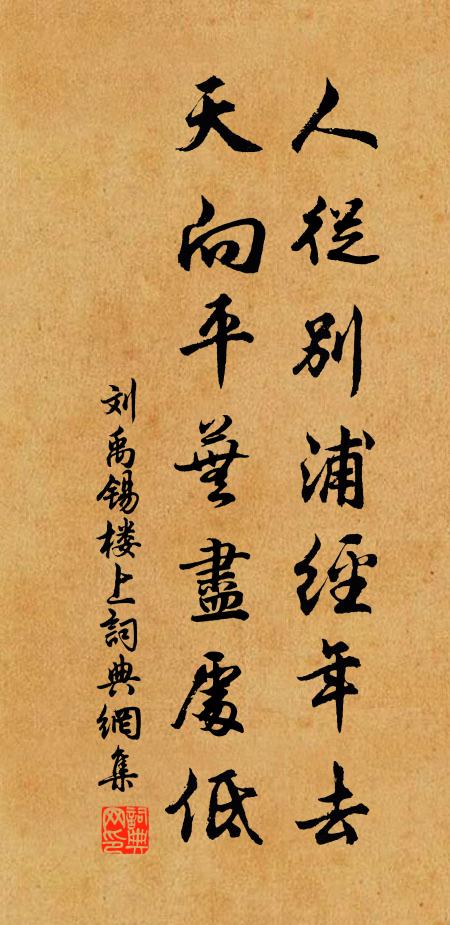 人從别浦經年去
天向平蕪盡處低
刘禹锡楼上詞典網集
詞典网印